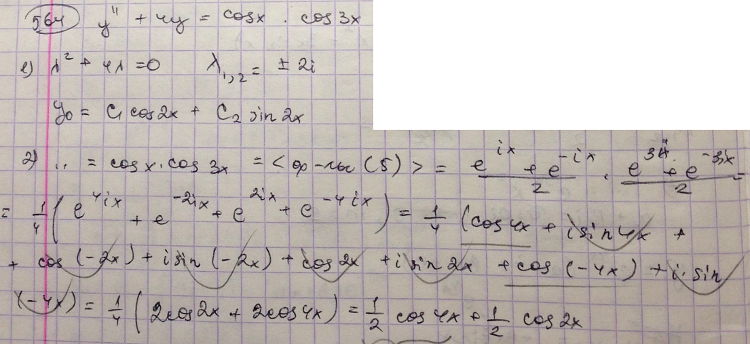 564 y'' + 4y = cosx · cos3x
1) λ² + 4λ = 0 λ₁,₂ = ± 2i
y₀ = C₁ cos2x + C₂ sin2x
2) .. = cosx · cos3x = <ф-лы (5)> = (e^{ix} + e^{-ix})/2 · (e^{3ix} + e^{-3ix})/2 =
= 1/4 (e^{4ix} + e^{-2ix} + e^{2ix} + e^{-4ix}) = 1/4 (cos4x + i sin4x +
+ cos(-2x) + i sin(-2x) + cos2x + i sin2x + cos(-4x) + i · sin
(-4x) = 1/4 (2cos2x + 2cos4x) = 1/2 cos4x + 1/2 cos2x